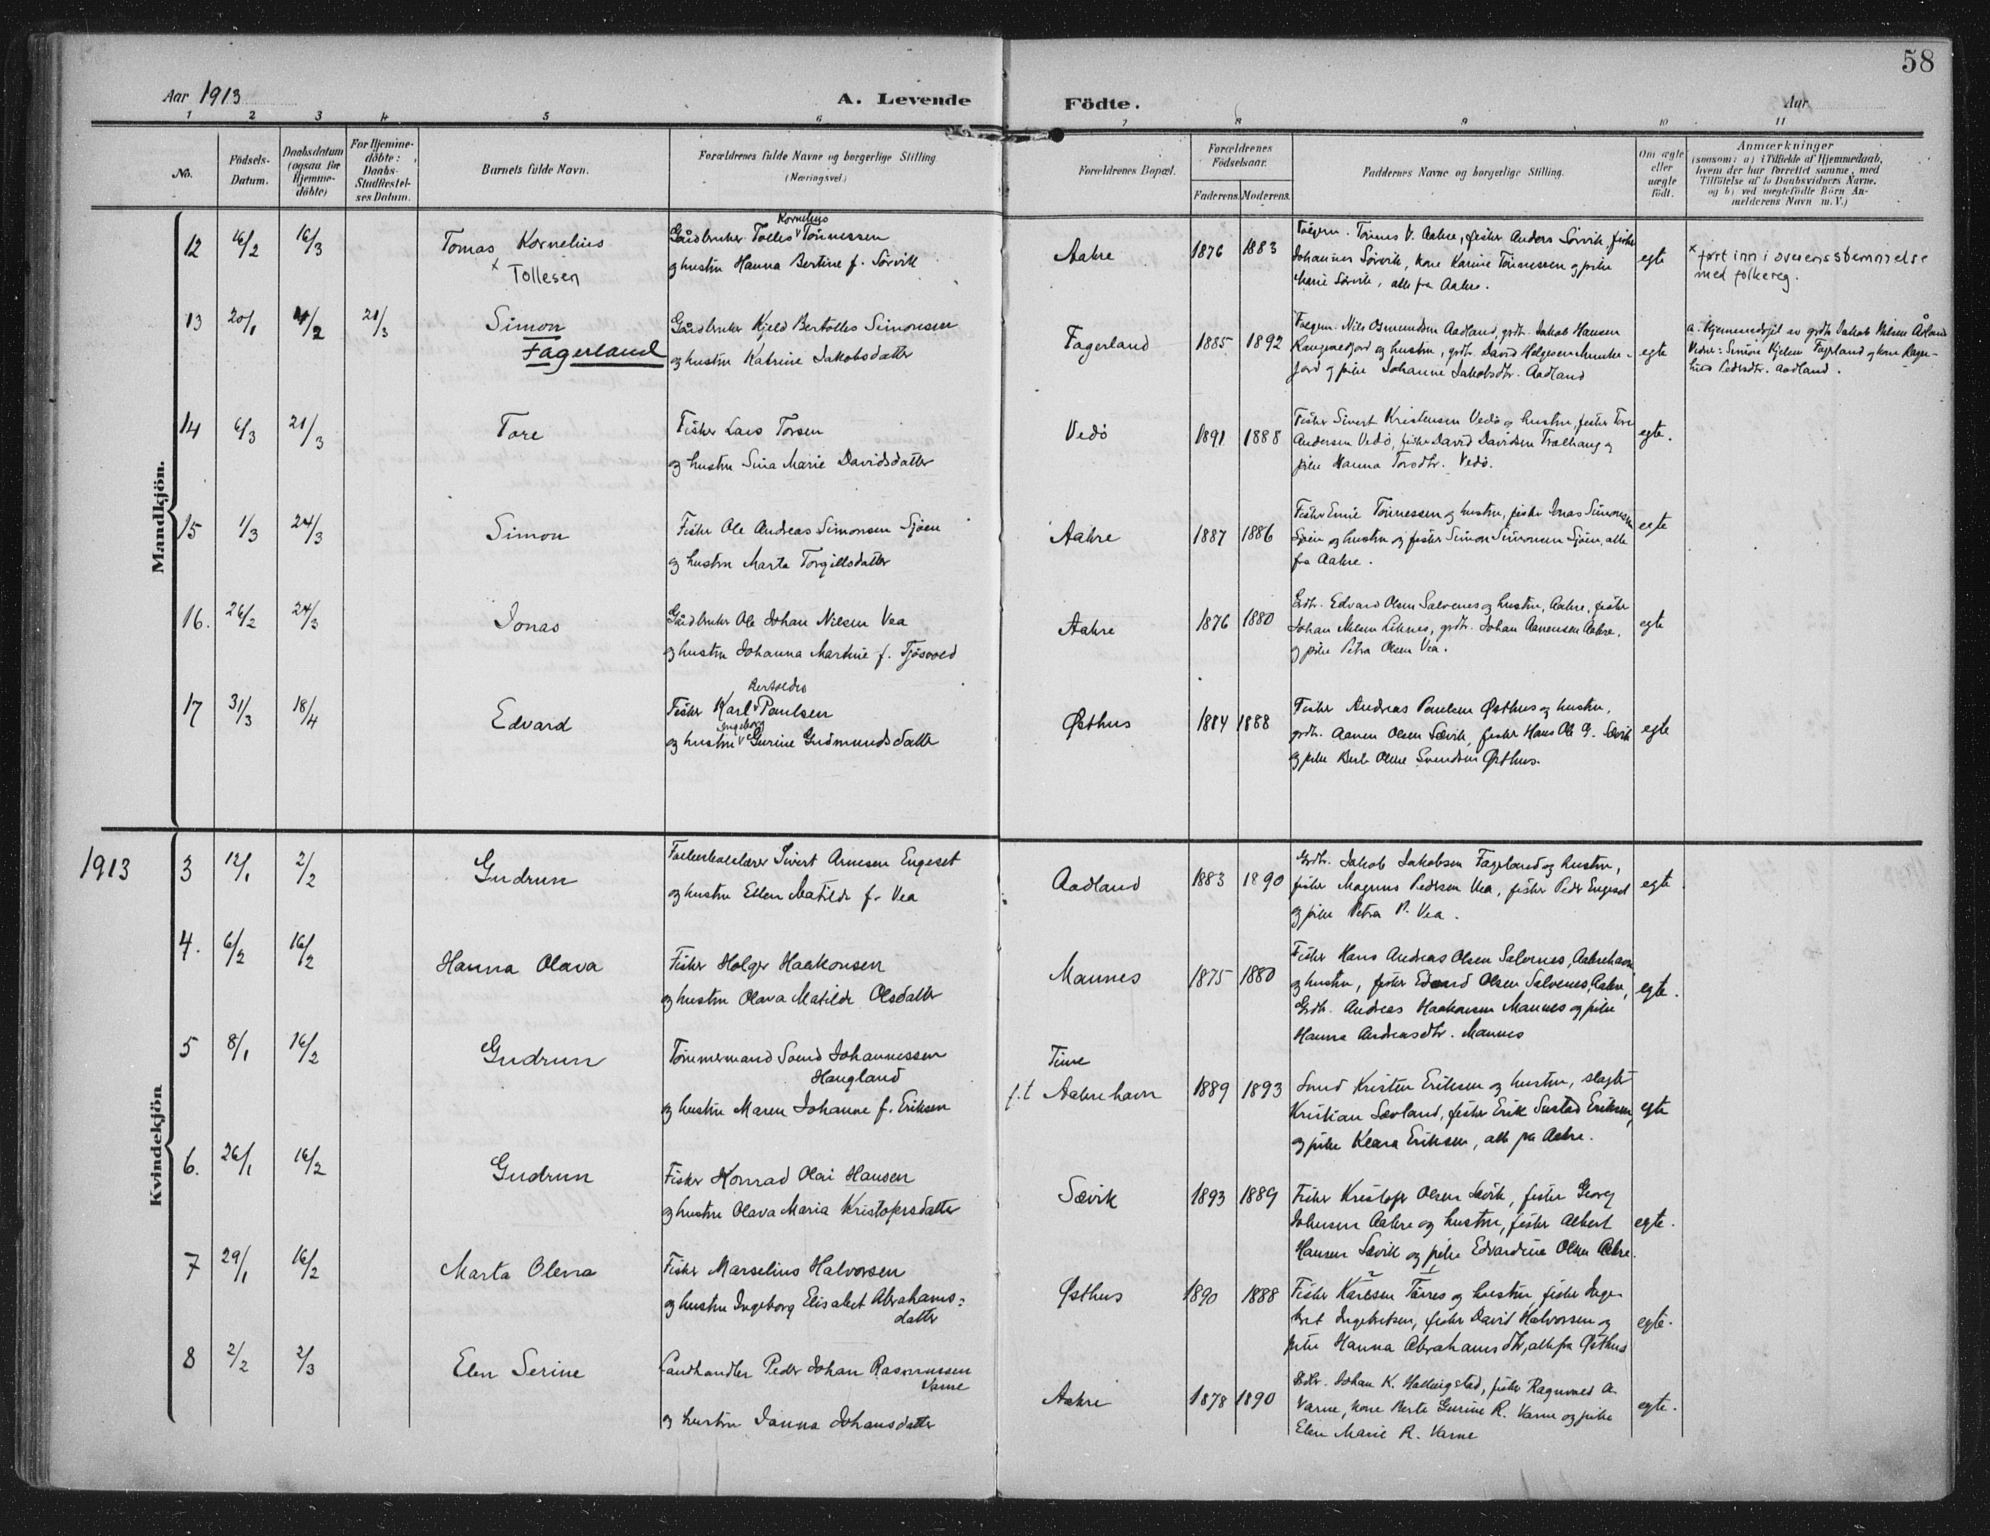 58
Aar 1913
A. Levende
Födte.
Aar
1 2 3 4 5 6 7 8 9 10 11
No.
Födsels-Datum.
Daabsdatum (ogsaa for Hjemmedöbte)
For Hjemmedöbte: Daabs-Stadfæstelses Datum.
Barnets fulde Navn.
Forældrenes fulde Navne og borgerlige Stilling (Næringsvei)
Forældrenes Bopæl.
Forældrenes Födselsaar.
Faderens. Moderens.
Faddernes Navne og borgerlige Stilling.
Om ægte eller uægte födt.
Anmærkninger
(saasom: a) i Tilfælde af Hjemmedaab,
hvem der har forrettet samme, med
Tilföielse af to Daabsvidners Navne,
og b) ved uægtefödte Börn An-
melderens Navn m. V.)
Mandkjön.
12 16/2 16/3
Tomas Kornelius
x Tollesen
Kornelius
Gårdbruker Tolles v Tönnessen
og hustru Hanna Bertine f. Sørvik
Aakre
1876 1883
Tönnes V. Aakre, fisker Anders Sørvik, fisker
Johannes Sørvik, kone Karine Tönnessen og pike
Marie Sørvik, alle fra Aakre.
egte
x ført inn i overensstemmelse
med folkereg.
13 20/1 4/2 21/3
Simon
Fagerland
Gårdbruker Kjeld Bertolles Simonsen
og hustru Katrine Jakobsdatter
Fagerland
1885 1892
Nils Osmundsen Aadland, grdbr. Jakob Hansen
og hustru, grdbr. David Helgesen Munke-
jord og pike Johanne Jakobsdtr. Aadland
egte
a. Hjemmedøpt av grdbr. Jakob Nilsen Ådland
Vidner: Simon Kjelsen Fagerland og kone Ragn-
hild Pedersdtr. Aadland.
14 6/3 21/3
Tore
Fisker Lars Torsen
og hustru Sina Marie Davidsdatter
Vedø
1891 1888
Fisker Sivert Kristensen Vedø og hustru, fisker Tore
Andersen Vedø, fisker David Davidsen Trælhaug og
pike Hanna Torsdtr. Vedø.
egte.
15 1/3 24/3
Simon
Fisker Ole Andreas Simonsen Sjøen
og hustru Marta Torgillsdatter
Aakre
1887 1886
Fisker Tönnessen og hustru, fisker Jonas Simonsen
Sjøen og hustru og fisker Simon Simonsen Sjøen, alle
fra Aakre.
egte
16. 26/2 24/3
Jonas
Gårdbruker Ole Johan Nilsen Vea
og hustru Johanna Martine f. Tjøsvold
Aakre
1876 1880
Grdbr. Edvard Olsen Salvenes og hustru, Aakre, fisker
Johan Nilsen Liknes, grdbr. Johan Aanensen Aakre,
og pike Petra Olsen Vea.
egte
17 31/3 18/4
Edvard
Bertoldes
Fisker Karl v Paulsen
Ingeborg
og hustru v Gurine Gudmundsdatter
Østhus
1884 1888
Fisker Andreas Paulsen Østhus og hustru,
grdbr. Aanen Olsen Sævik, fisker Hans Ole G. Sævik
og pike Berte Oline Svendsen Østhus.
egte
1913
Kvindekjön
3 12/1 2/2
Gudrun
Folkeskolelærer Sivert Arnesen Engeset
og hustru Ellen Matilde f. Vea
Aadland
1883 1890
Grdbr. Jakob Jakobsen Fagerland og hustru,
fisker Magnus Pedersen Vea, fisker Peder Engeset
og pike Petra P. Vea.
egte
4. 6/2 16/2
Hanna Olava
Fisker Holger Haakonsen
og hustru Olava Matilde Olsdatter
Mannes
1875 1880
Fisker Hans Andreas Olsen Salvenes, Aakrehavn
og hustru, fisker Edvard Olsen Salvenes, Aakre,
Grdbr. Andreas Haakonsen Mannes og pike
Hanna Andreasdtr. Mannes
egte.
5 8/1 16/2
Gudrun
Tømmermand Svend Johannessen
Haugland
og hustru Maren Johanne f. Eriksen
Time
f.t Aakrehavn
1889 1893
Smed Kristen Eriksen og hustru, slagter
Kristian Sævland, fisker Erik Sustad Eriksen,
og pike Klara Eriksen, alle fra Aakre.
egte
6. 26/1 16/2
Gudrun
Fisker Konrad Olai Hansen
og hustru Olava Maria Kristofersdatter
Sævik
1893 1889
Fisker Kristofer Olsen Sævik, fisker Georg
Johnsen Aakre og hustru, fisker Albert
Hansen Sævik og pike Edvardine Olsen Aakre.
egte.
7 29/1 16/2
Marta Olena
Fisker Marselius Halvorsen
og hustru Ingeborg Elisabet Abrahams=
datter
Østhus
1890 1888
2 1
Fisker Karlsen Tørres og hustru, fisker Inge-
bret Ingebretsen, fisker David Halvorsen og
pike Hanna Abrahamsdtr, alle fra Østhus
egte.
8 2/2 2/3
Elen Serine
Landhandler Peder Johan Rasmussen
Varne
og hustru Janna Johansdatter
Aakre
1878 1890
Johan K. Hallingstad, fisker Ragnvald A.
Varne, kone Berte Gurine R. Varne og pike
Elen Marie R. Varne
egte.